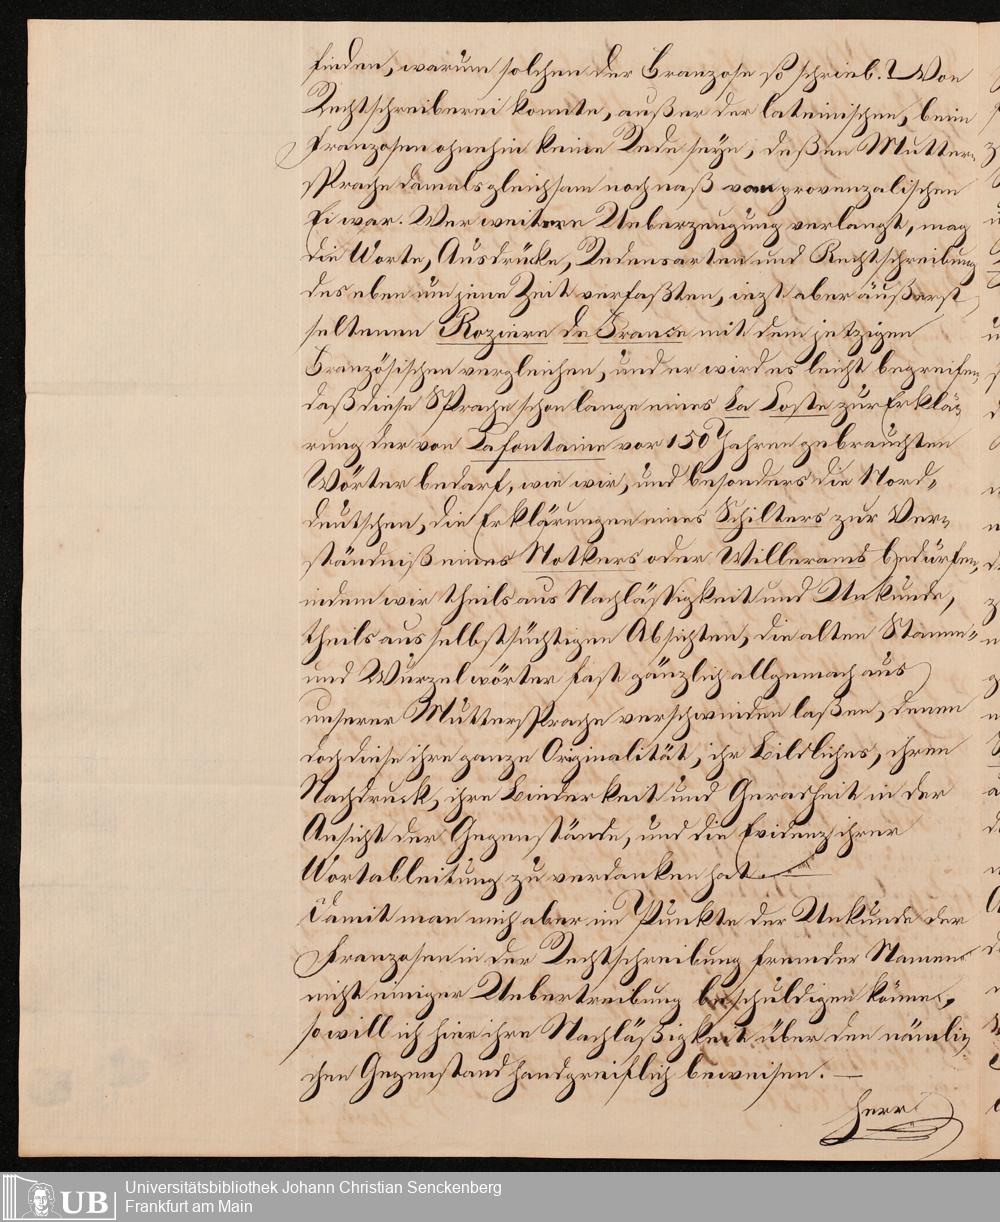 finden, warum solchen der Franzose so schrieb. Von
Rechtschreiberei konnte, außer der lateinischen, beim
Franzosen ohnehin keine Rede seyn, deßen Mutter-
sprache damals gleichsam noch naß vom provenzalischen
Ei war. Wer weitere Ueberzeugung verlangt, mag
die Worte, Ausdrücke, Redensarten und Rechtschreibung
des eben um jene Zeit verfaßten, iezt aber äußerst
seltenen Roziere de France mit dem jetzigen
Französischen vergleichen, und er wird es leicht begreifen,
daß diese Sprache schon lange eines La Coste zur Erklä-
rung der von Lafontaine vor 150 Jahren gebrauchten
Wörter bedarf, wie wir, und besonders die Nord-
deutschen, die Erklärungen eines Schilters zur Ver-
ständniß eines Notkers oder Willerams bedürfen,
indem wir theils aus Nachläßigkeit und Unkunde,
theils aus selbstsüchtigen Absichten, die alten Stamm-
und Wurzelwörter fast gänzlich allgemach aus
unserer Muttersprache verschwinden laßen, denen
doch diese ihre ganze Originalität, ihr Bildliches, ihren
Nachdruck, ihre Biederkeit und Geradheit in der
Ansicht der Gegenstände, und die Evidenz ihrer
Wortableitung zu verdanken hat. —
Damit man mich aber im Punkte der Unkunde der
Franzosen in der Rechtschreibung fremder Namen
nicht einiger Uebertreibung beschuldigen könne,
so will ich hier ihre Nachläßigkeit über den nämli-
chen Gegenstand handgreiflich beweisen. —
Herr
UB
Universitätsbibliothek Johann Christian Senckenberg
Frankfurt am Main